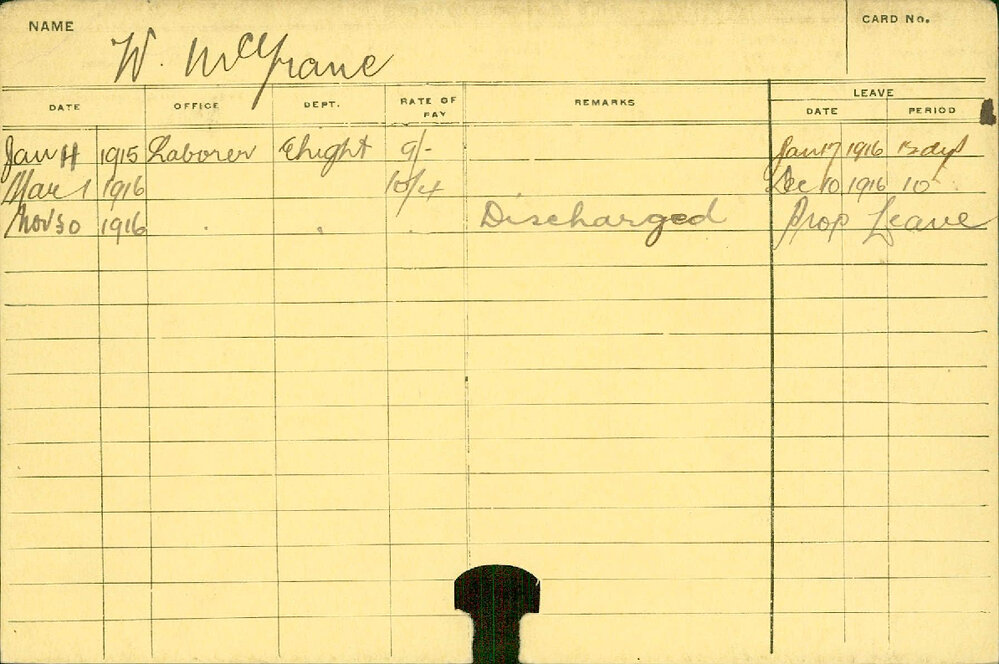 NAME W. McGrane CARD No.
DATE OFFICE DEPT. RATE OF PAY REMARKS LEAVE DATE PERIOD
Jan 11 1915 Laborer 9/- Jan 17 1916
Mar 1 1916 10/4 Dec 10 1916 10
Nov 30 1916 . . . Discharged Prop Leave